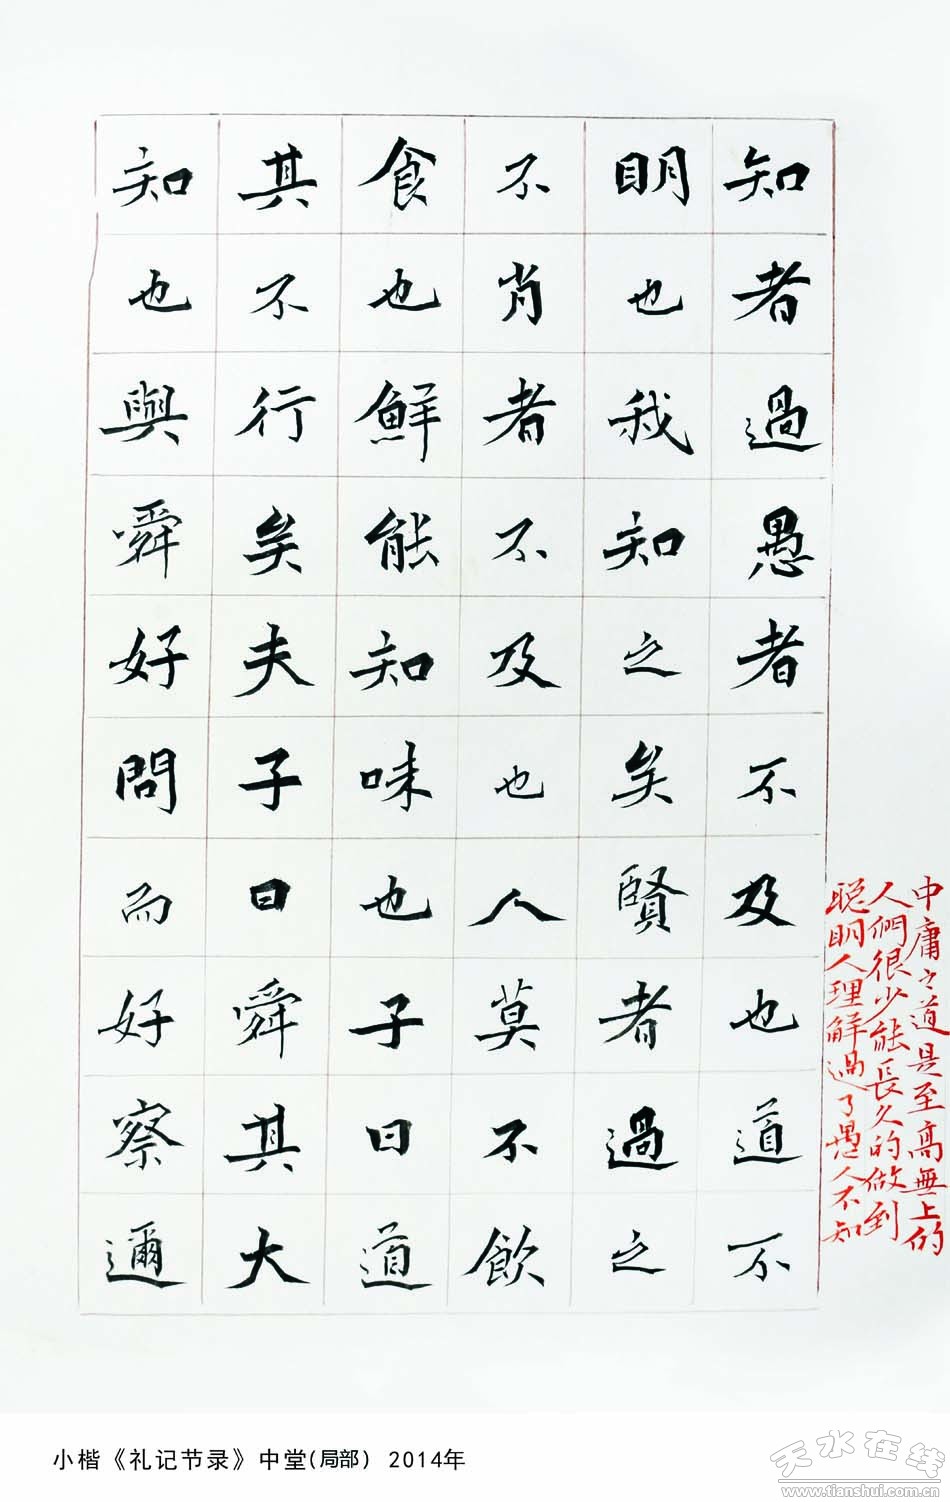 知者過愚者不及也道不
明也我知之矣賢者過之
不肖者不及也人莫不飲
食也鮮能知味也子曰道
其不行矣夫子曰舜其大
知也與舜好問而好察邇
中庸之道是至高無上的
人們很少能長久的做到
聪明人理解过了愚人不知
小楷《礼记节录》中堂(局部) 2014年
天水在线
www.tianshui.com.cn